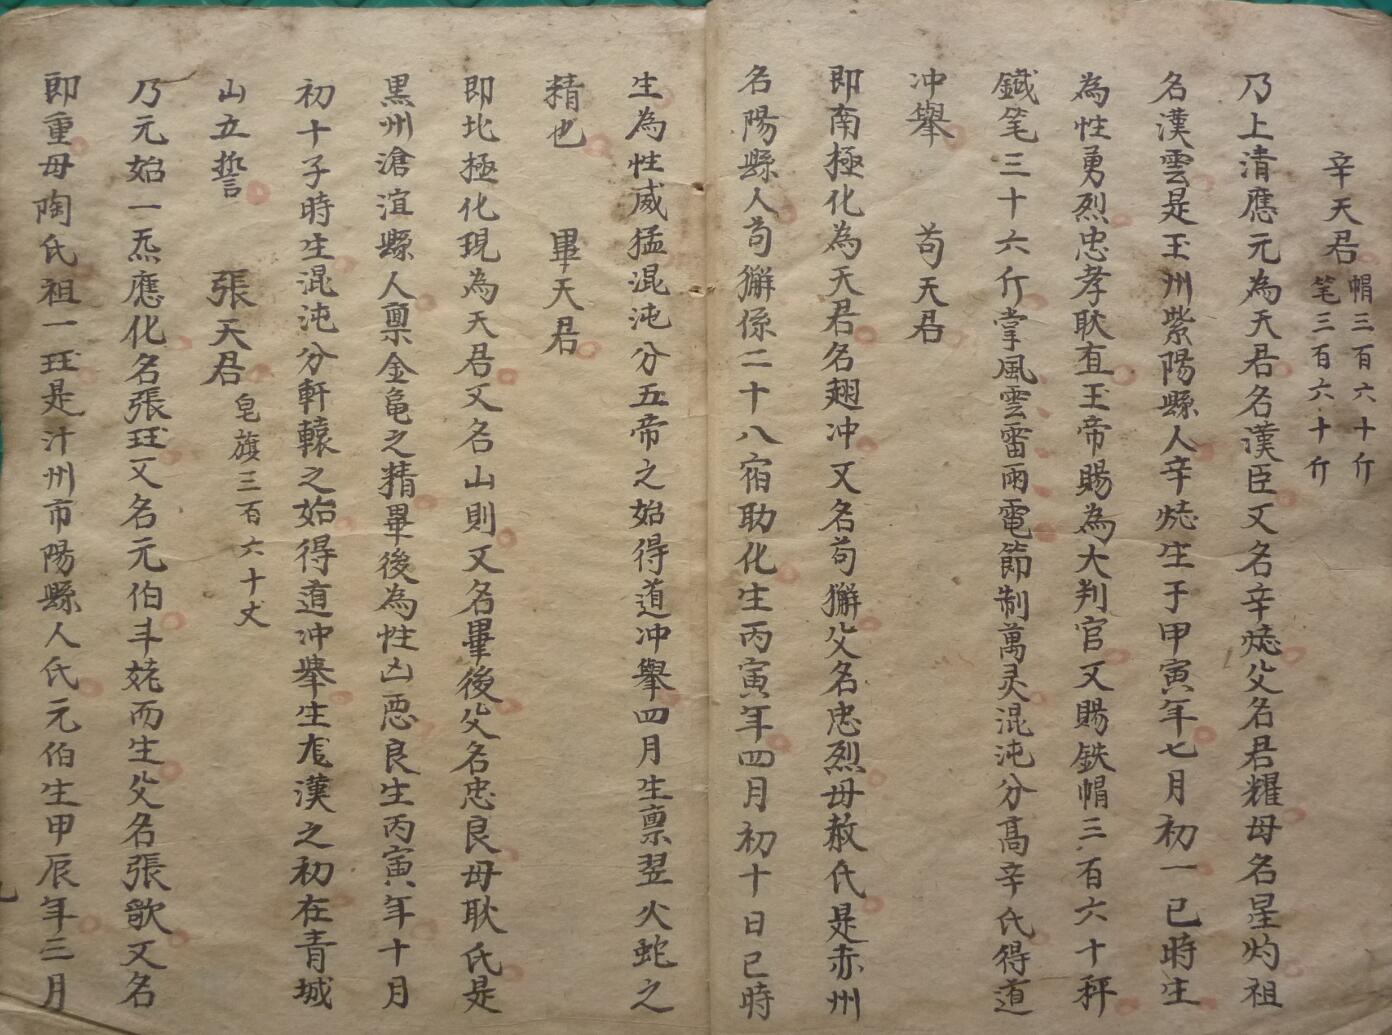 辛天君 帽三百六十斤
笔三百六十斤
乃上清應元為天君名漢臣又名辛㷿父名君耀母名星灼祖
名漢雲是玉州紫陽縣人辛㷿生于甲寅年七月初一巳時生
為性勇烈忠孝耿直玉帝賜為大判官又賜鉄帽三百六十秤
鐵笔三十六斤掌風雲雷雨電節制萬灵混沌分髙辛氏得道
冲舉 苟天君
即南極化為天君名翅冲又名苟獬父名忠烈母赦氏是赤州
名陽縣人苟獬係二十八宿助化生丙寅年四月初十日巳時
生為性威猛混沌分五帝之始得道冲舉四月生禀翌火蛇之
精也 畢天君
即北極化現為天君又名山則又名畢後父名忠良母耿氏是
黒州滄渲縣人禀金龟之精畢後為性凶悪良生丙寅年十月
初十子時生混沌分軒轅之始得道冲舉生庞漢之初在青城
山立誓 張天君 皂旗三百六十丈
乃元始一炁應化名張珏又名元伯斗姥而生父名張歆又名
即重母陶氏祖一珏是汁州市陽縣人氏元伯生甲辰年三月